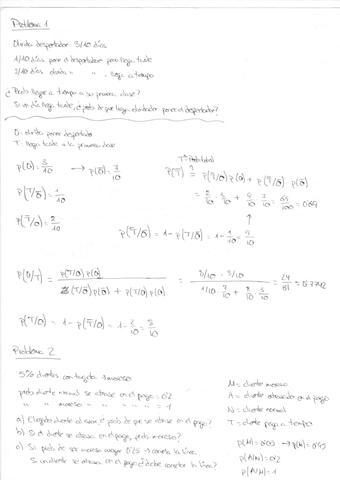 Problema 1
Olvida despertador 3/10 días
1/10 días pone el despertador pero llega tarde
2/10 días olvida " " , llega a tiempo
¿Prob llegue a tiempo a su primera clase?
Si un día llega tarde, ¿prob de que haya olvidado poner el despertador?
O = olvida poner despertador
T = llega tarde a la primera clase
p(O) = 3/10 → p(Ō) = 7/10
p(T/Ō) = 1/10
p(T̄/O) = 2/10
Tª Prob total
p(T̄) = p(T̄/O) p(O) + p(T̄/Ō) p(Ō)
= 2/10 · 3/10 + 9/10 · 7/10 = 69/100 = 0'69
p(T̄/Ō) = 1 - p(T/Ō) = 1 - 1/10 = 9/10
p(O/T) = p(T/O) p(O) / p(T/Ō) p(Ō) + p(T/O) p(O) = 8/10 · 3/10 / 1/10 · 7/10 + 8/10 · 3/10 = 24/31 = 0'7742
p(T/O) = 1 - p(T̄/O) = 1 - 2/10 = 8/10
Problema 2
5% clientes con tarjeta → moroso
prob cliente normal se atrase en el pago = 0'2
" " moroso " " " " " = 1
a) Elegido cliente al azar, ¿prob de que se atrase en el pago?
b) Si el cliente se atrasa en el pago, prob moroso?
c) Si prob de ser moroso mayor 0'25 → cancela la línea
Si un cliente se atrasa en el pago ¿debe cancelar la línea?
M = cliente moroso
A = cliente atrasado en el pago
N = cliente normal
T = cliente paga a tiempo
p(M) = 0'05 → p(N) = 0'95
p(A/N) = 0'2
p(A/M) = 1